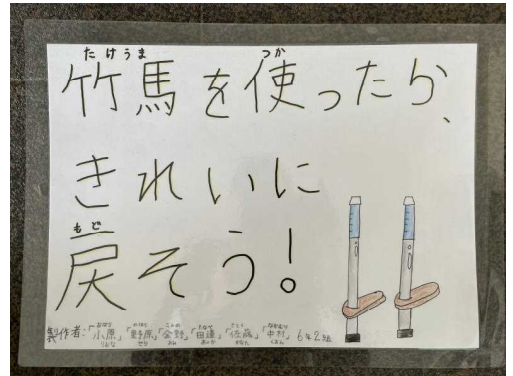 竹馬を使ったら、
きれいに
戻そう!
製作者:「小原」「野原」「金野」「田邊」「佐藤」「中村」6年2組